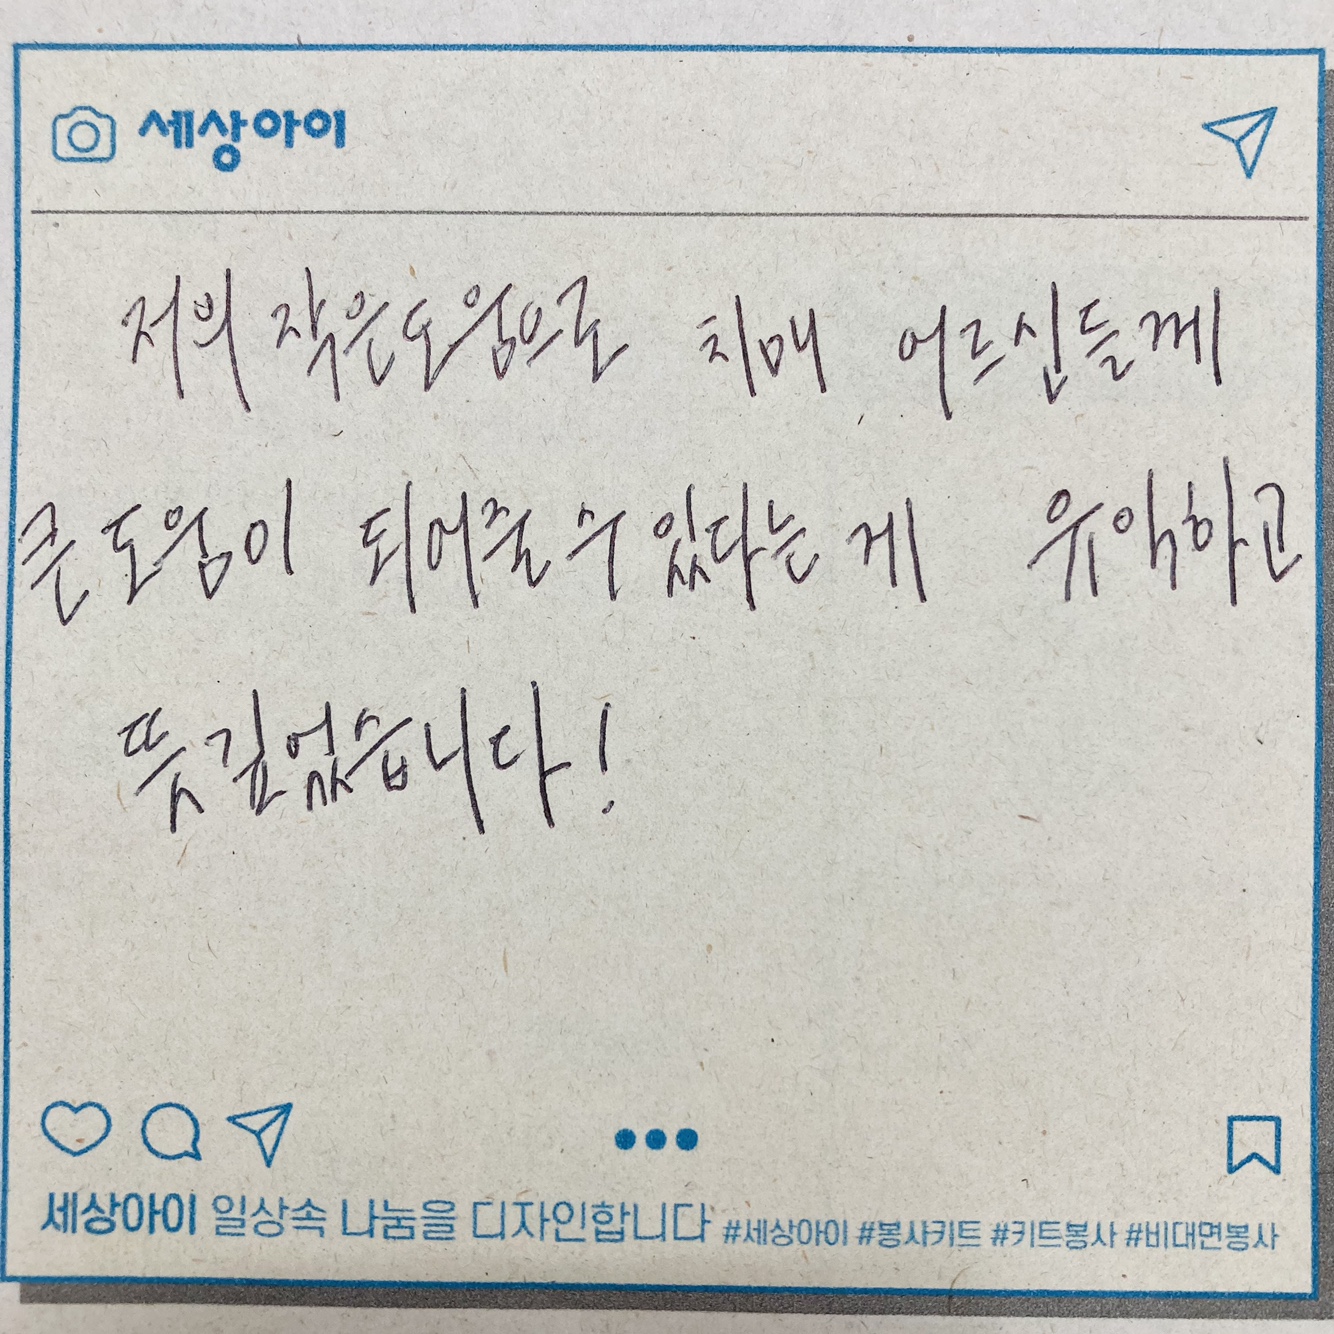 세상아이
저의 작은 도움으로 치매 어르신들께
큰 도움이 되어줄 수 있다는 게 유익하고
뜻깊었습니다!
세상아이 일상속 나눔을 디자인합니다 #세상아이 #봉사키트 #키트봉사 #비대면봉사